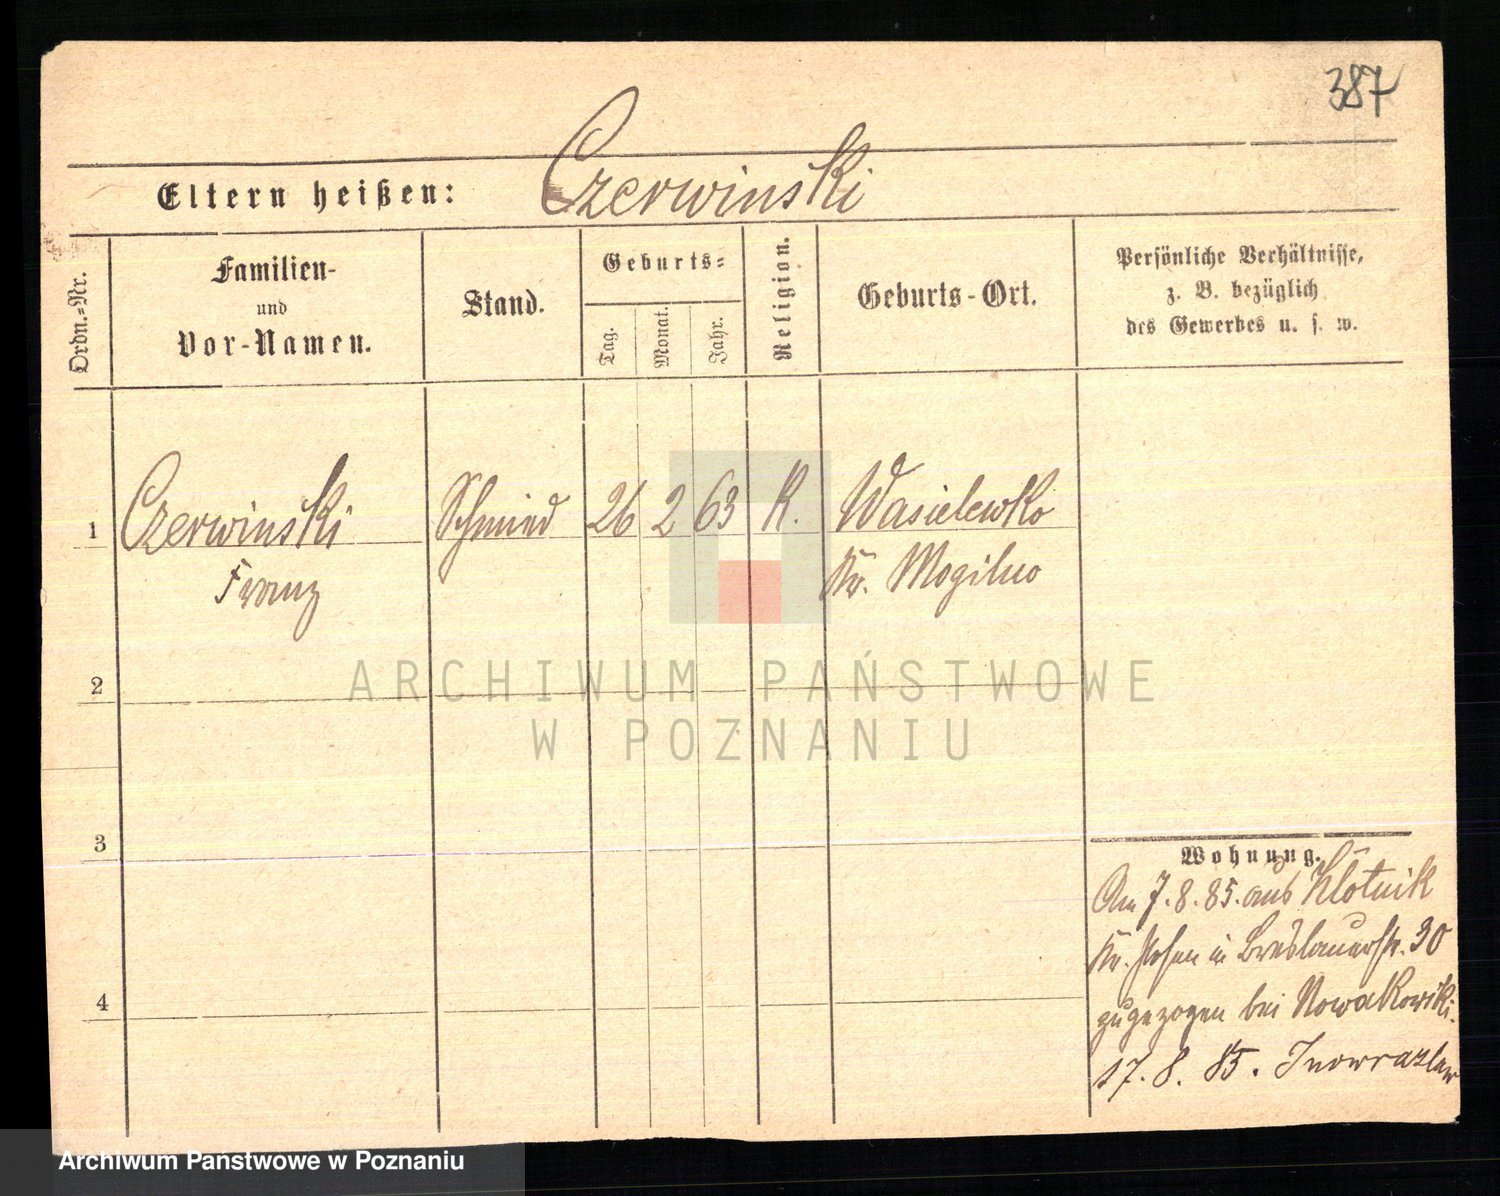 387
Eltern heißen: Czerwinski
Ordn.-Nr.
Familien-
und
Vor-Namen.
Stand.
Geburts-
Tag.
Monat.
Jahr.
Religion.
Geburts-Ort.
Persönliche Verhältnisse,
z. B. bezüglich
des Gewerbes u. s. w.
1 Czerwinski Schmied 26 2 63 K. Wasielewko
Franz Kr. Mogilno
ARCHIWUM PAŃSTWOWE
W POZNANIU
2
3
4
Wohnung.
Am 7.8.85. aus Klotnik
Kr. Posen in Breslauerstr. 30
zugezogen bei Nowakowski.
17.8.85. Inowrazlaw
Archiwum Państwowe w Poznaniu